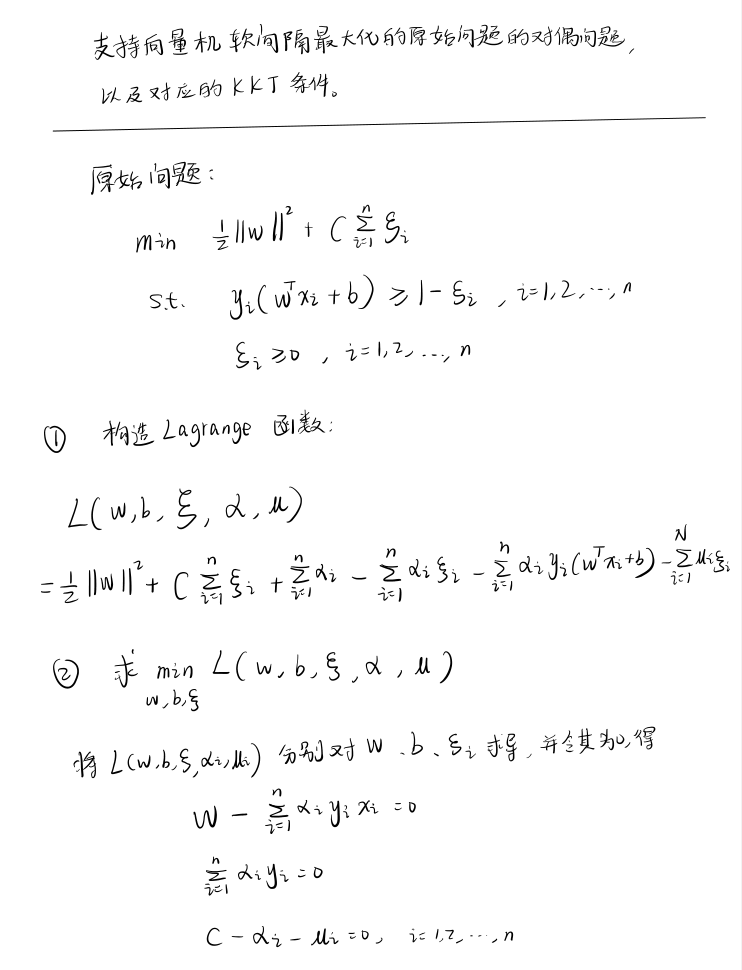 支持向量机软间隔最大化的原始问题的对偶问题,
以及对应的KKT条件。
原始问题:
min ½||w||² + C∑ⁿᵢ₌₁ ξᵢ
s.t. yᵢ(wᵀxᵢ+b) ≥ 1-ξᵢ , i=1,2,…,n
ξᵢ ≥ 0 , i=1,2,…,n
① 构造Lagrange函数:
L(w,b,ξ,α,μ)
= ½||w||² + C∑ⁿᵢ₌₁ ξᵢ + ∑ⁿᵢ₌₁ αᵢ - ∑ⁿᵢ₌₁ αᵢξᵢ - ∑ⁿᵢ₌₁ αᵢyᵢ(wᵀxᵢ+b) - ∑ᴺᵢ₌₁ μᵢξᵢ
② 求 min L(w,b,ξ,α,μ)
w,b,ξ
将 L(w,b,ξ,αᵢ,μᵢ) 分别对 w、b、ξᵢ 求导,并令其为0,得
w - ∑ⁿᵢ₌₁ αᵢyᵢxᵢ = 0
∑ⁿᵢ₌₁ αᵢyᵢ = 0
C - αᵢ - μᵢ = 0, i=1,2,…,n